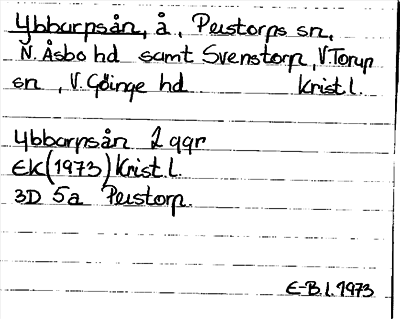 Ybbarpsån, å, Perstorps sn,
N. Åsbo hd samt Svenstorp, V. Torup
sn, V. Göinge hd Krist. l.
Ybbarpsån 2 ggr
EK (1973) Krist. l.
3D 5a Perstorp
E-B. L. 1973